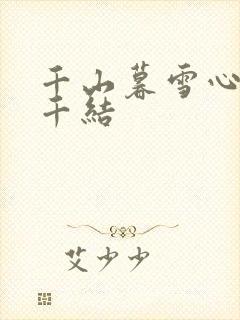 千山暮雪心
千結
艾少少